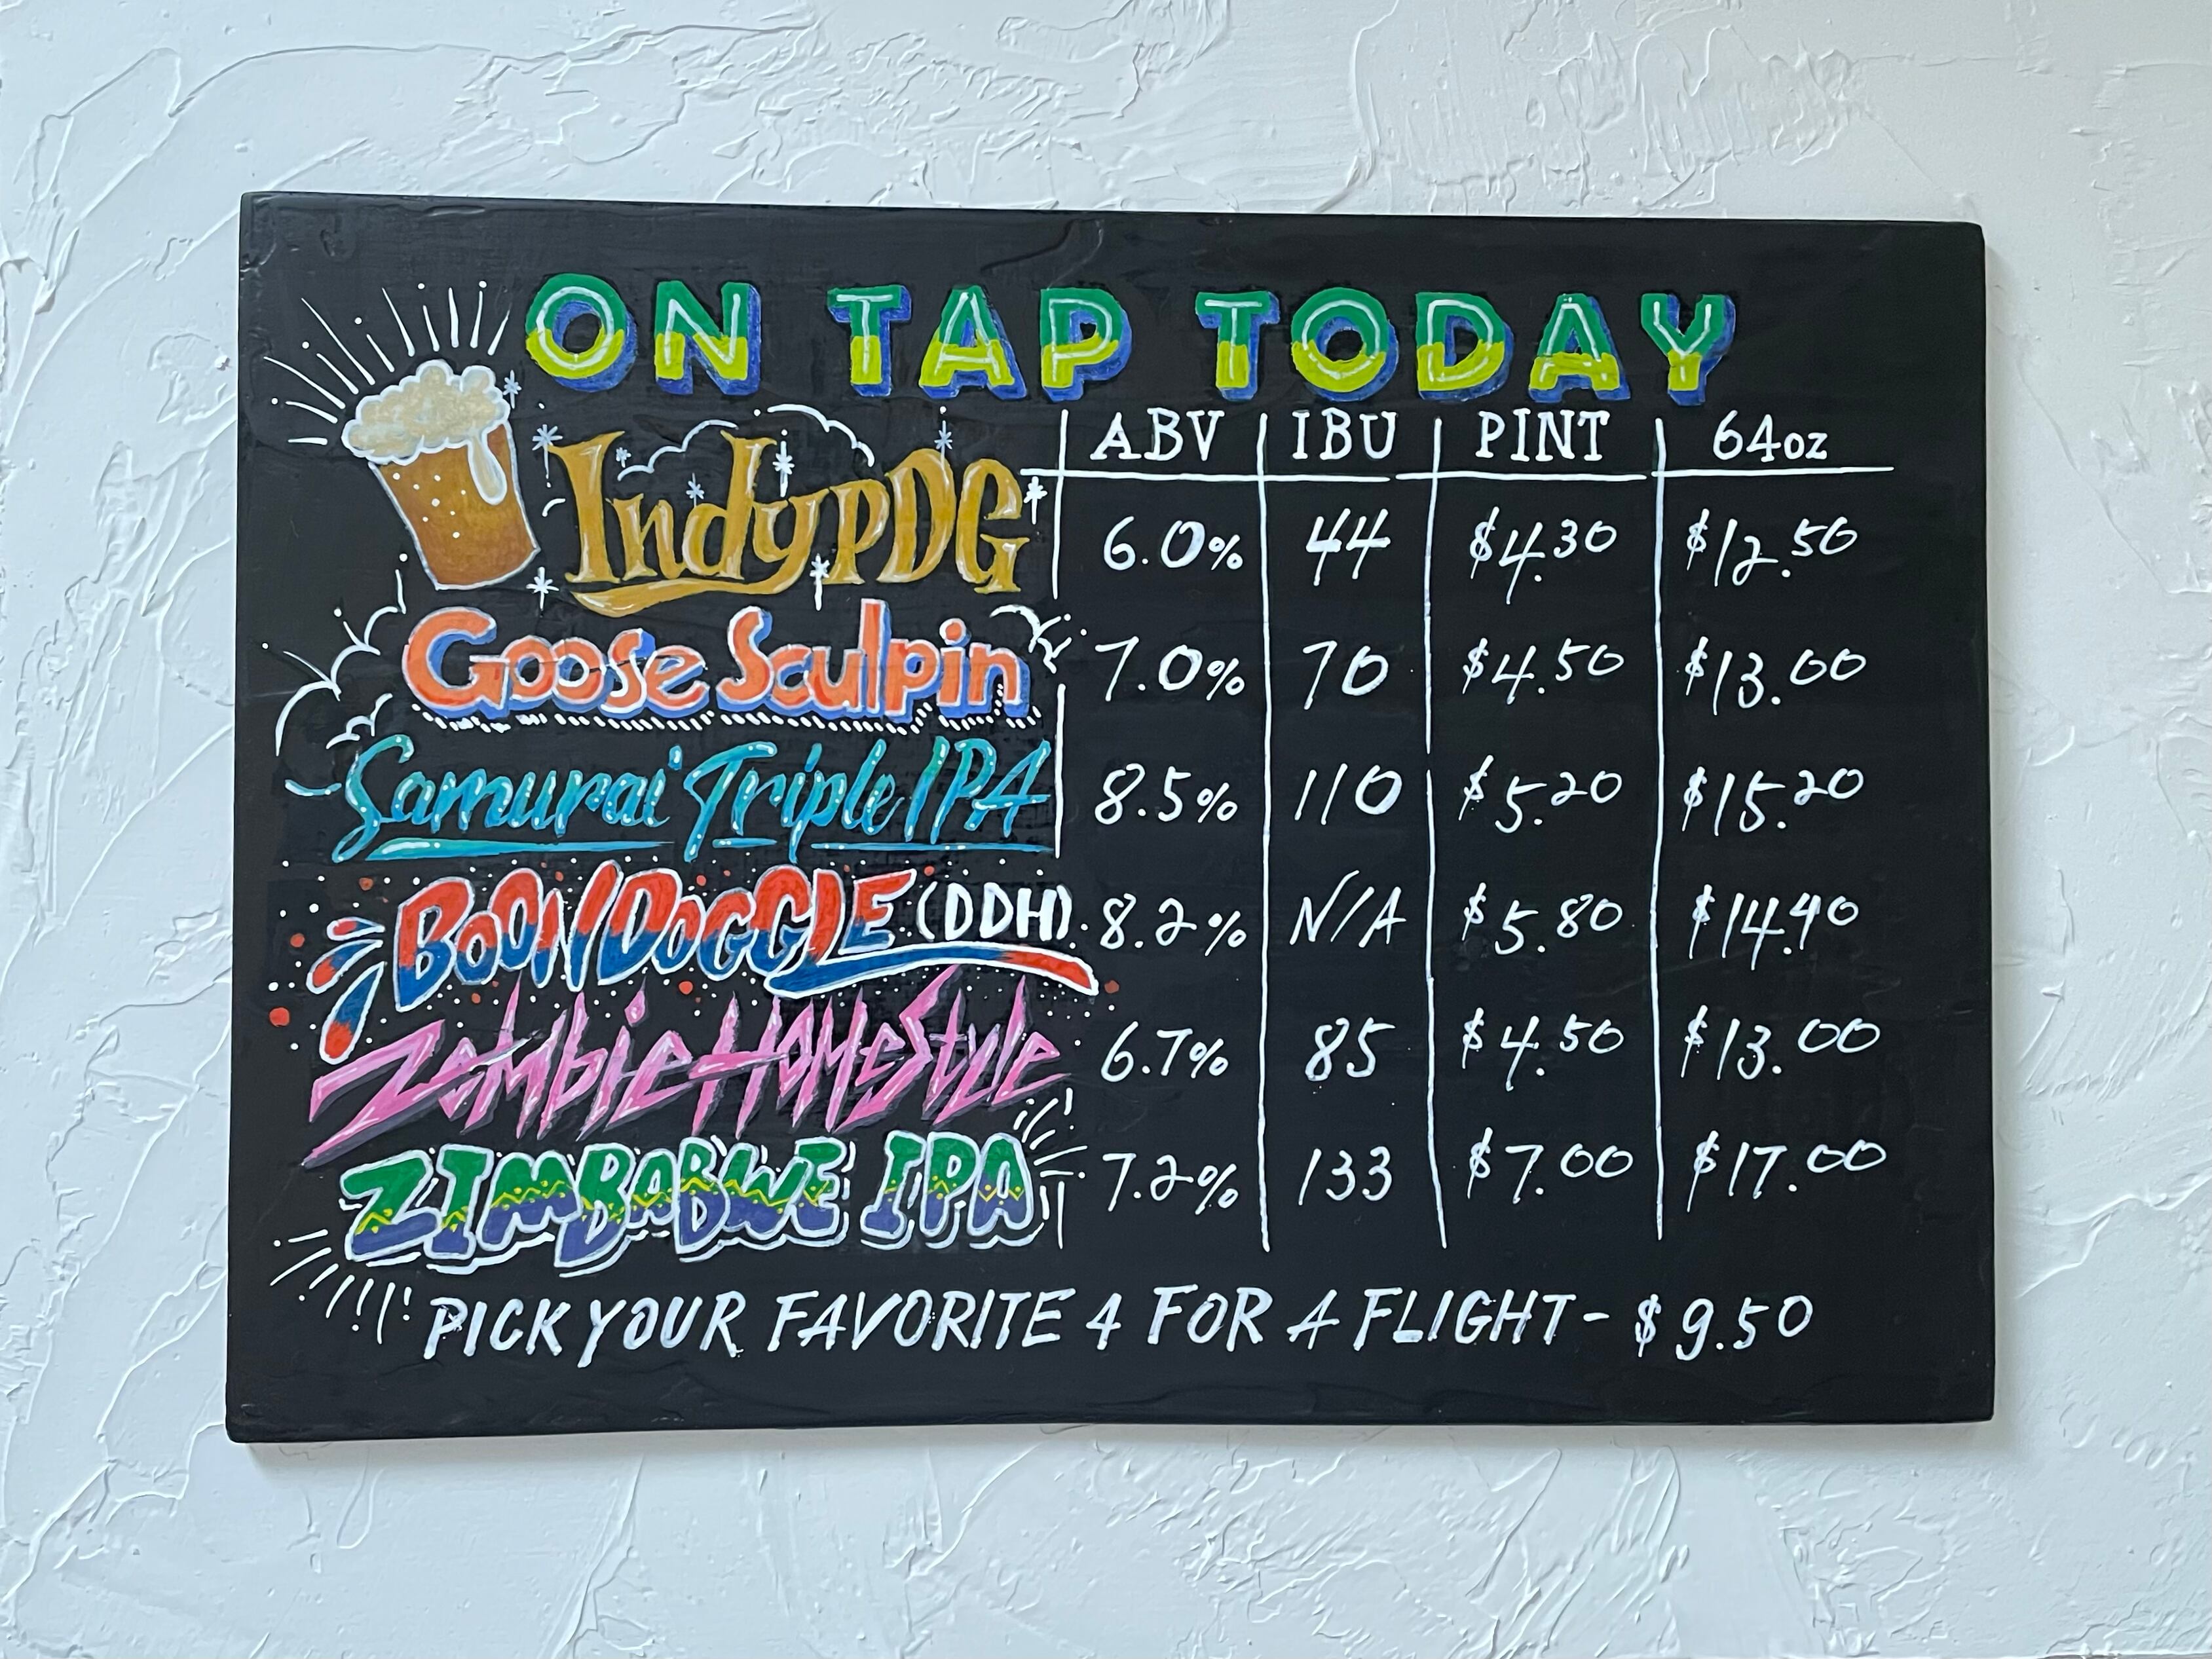 ON TAP TODAY
ABV IBU PINT 64oz
IndyPDG 6.0% 44 $4.30 $12.50
Goose Sculpin 7.0% 70 $4.50 $13.00
Samurai Triple IPA 8.5% 110 $5.20 $15.20
BOONDOGGLE (DDH) 8.2% N/A $5.80 $14.40
Zombie HOMeStyle 6.7% 85 $4.50 $13.00
ZIMBABWE IPA 7.2% 133 $7.00 $17.00
PICK YOUR FAVORITE 4 FOR A FLIGHT - $9.50